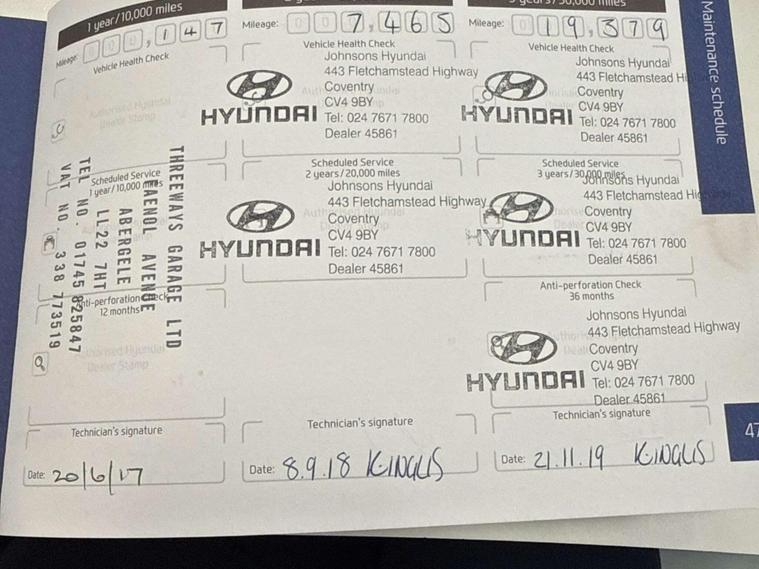 1 year/10,000 miles
Mileage: 000,147
Vehicle Health Check
Authorised Hyundai
Dealer Stamp
THREEWAYS GARAGE LTD
FAENOL AVENUE
ABERGELE
LL22 7HT
TEL NO. 01745 825847
VAT NO. 338 773519
Scheduled Service
1 year/10,000 miles
Anti-perforation Check
12 months
Authorised Hyundai
Dealer Stamp
Technician's signature
Date: 20/6/17
Mileage: 007,465
Vehicle Health Check
Johnsons Hyundai
443 Fletchamstead Highway
Coventry
CV4 9BY
HYUNDAI Tel: 024 7671 7800
Dealer 45861
Scheduled Service
2 years/20,000 miles
Johnsons Hyundai
443 Fletchamstead Highway
Coventry
CV4 9BY
HYUNDAI Tel: 024 7671 7800
Dealer 45861
Technician's signature
Date: 8.9.18
Mileage: 019,379
Vehicle Health Check
Johnsons Hyundai
443 Fletchamstead Hi
Coventry
CV4 9BY
HYUNDAI Tel: 024 7671 7800
Dealer 45861
Scheduled Service
3 years/30,000 miles
Johnsons Hyundai
443 Fletchamstead Hig
Coventry
CV4 9BY
HYUNDAI Tel: 024 7671 7800
Dealer 45861
Anti-perforation Check
36 months
Johnsons Hyundai
443 Fletchamstead Highway
Coventry
CV4 9BY
HYUNDAI Tel: 024 7671 7800
Dealer 45861
Technician's signature
Date: 21.11.19
Maintenance schedule
47